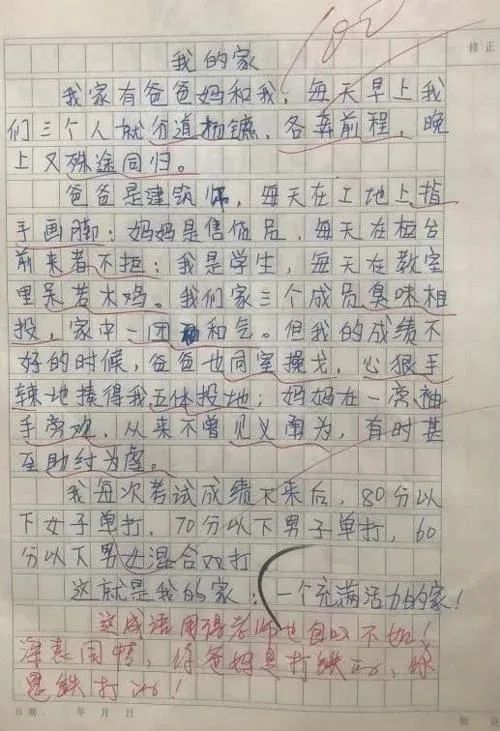 100
修正
我的家
我家有爸爸妈和我，每天早上我
们三个人就分道扬镳，各奔前程，晚
上又殊途同归。
爸爸是建筑师，每天在工地上指
手画脚；妈妈是售货员，每天在柜台
前来者不拒；我是学生，每天在教室
里呆若木鸡。我们家三个成员臭味相
投，家中一团和气。但我的成绩不
好的时候，爸爸也同室操戈，心狠手
辣地揍得我五体投地；妈妈在一旁袖
手旁观，从来不曾见义勇为，有时甚
至助纣为虐。
我每次考试成绩下来后，80分以
下女子单打，70分以下男子单打，60
分以下男女混合双打
这就是我的家；一个充满活力的家！
这成语用得老师也自叹不如！
深表同情，你爸妈是打铁的，你
是铁打的！
日期： 年 月 日